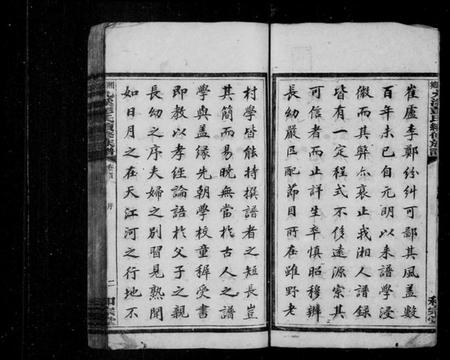 崔盧李鄭紛糾可鄙其風蓋數
百年未已自元明以来譜學浸
微而其弊亦衰止我湘人譜録
皆有一定程式不侈遠源寀其
可信者而止詳生卒慎昭穆辨
長幼嚴匹配節目所在雖野老
村學皆能持撰譜者之短長豈
其簡而易曉無當於古人之譜
學與盖緣先朝學校童穉受書
即教以孝經論語於父子之親
長幼之序夫婦之别習見熟聞
如日月之在天江河之行地不